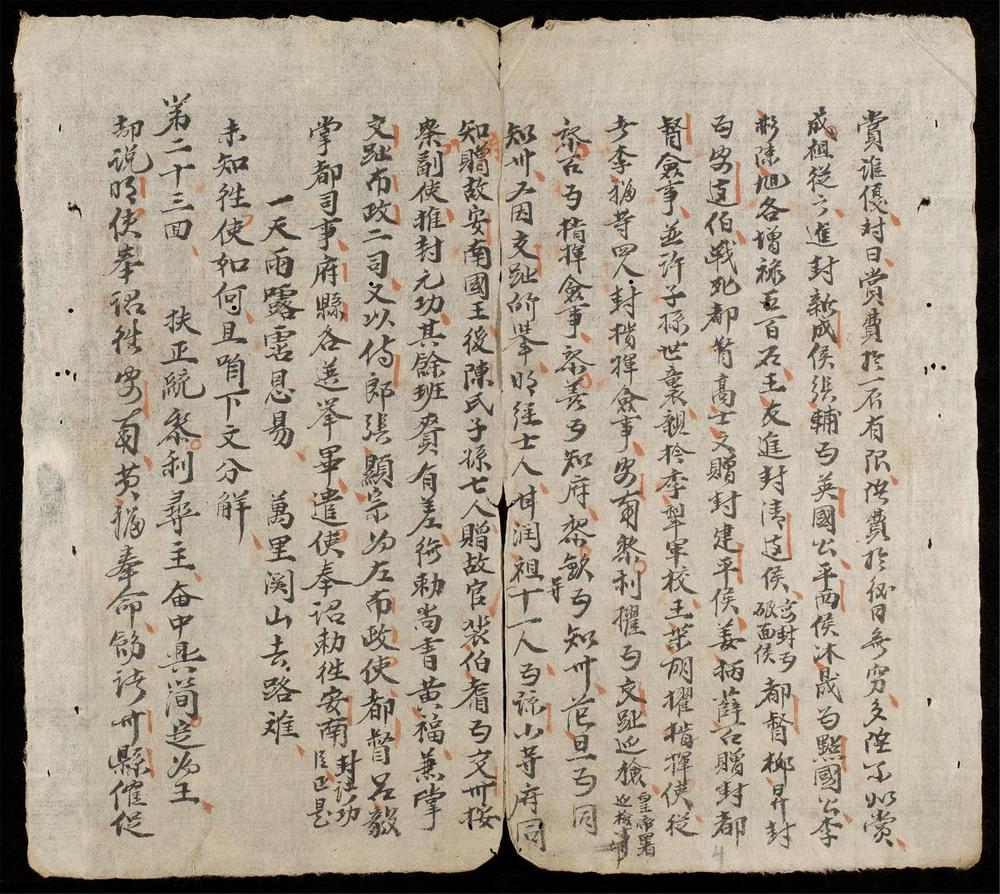 賞誰優封曰賞費扵一石有限洪費扵後日無窮多陞不如賞
成祖從之進封新成侯張輔为英國公平西侯沐晟为黔國公李
彬陳旭各增禄五百石王友進封清遠侯 都督柳昇封
为安遠伯戰死都督高士文贈封建平侯姜柄薛石贈封都
督僉事並許子孫世襲親拎李犁軍校王柴胡擢指揮使從
者李福等四人封指揮僉事安南黎利擢为交趾巡檢
黎石为指揮僉事黎善为知府黎欽为知州范旦为同
知州又因交趾所舉明經士人甘润祖等十一人为諒山等府同
知贈故安南國王後陳氏子孫七人贈故官裴伯耆为交州按
察副使推封元功其餘班賚有差復勅尚書黄福兼掌
交趾布政二司又以侍郎張顯宗为左布政使都督吕毅
掌都司事府縣各選举畢遣使奉詔勅徃安南 封諸功臣正是
一天雨露霑恩易 萬里関山去路难
未知徃使如何且聞下文分解
苐二十三回 扶正統黎利尋主 奮中興簡定为王
却説明使奉詔徃安南黄福奉命飭諸州縣催促